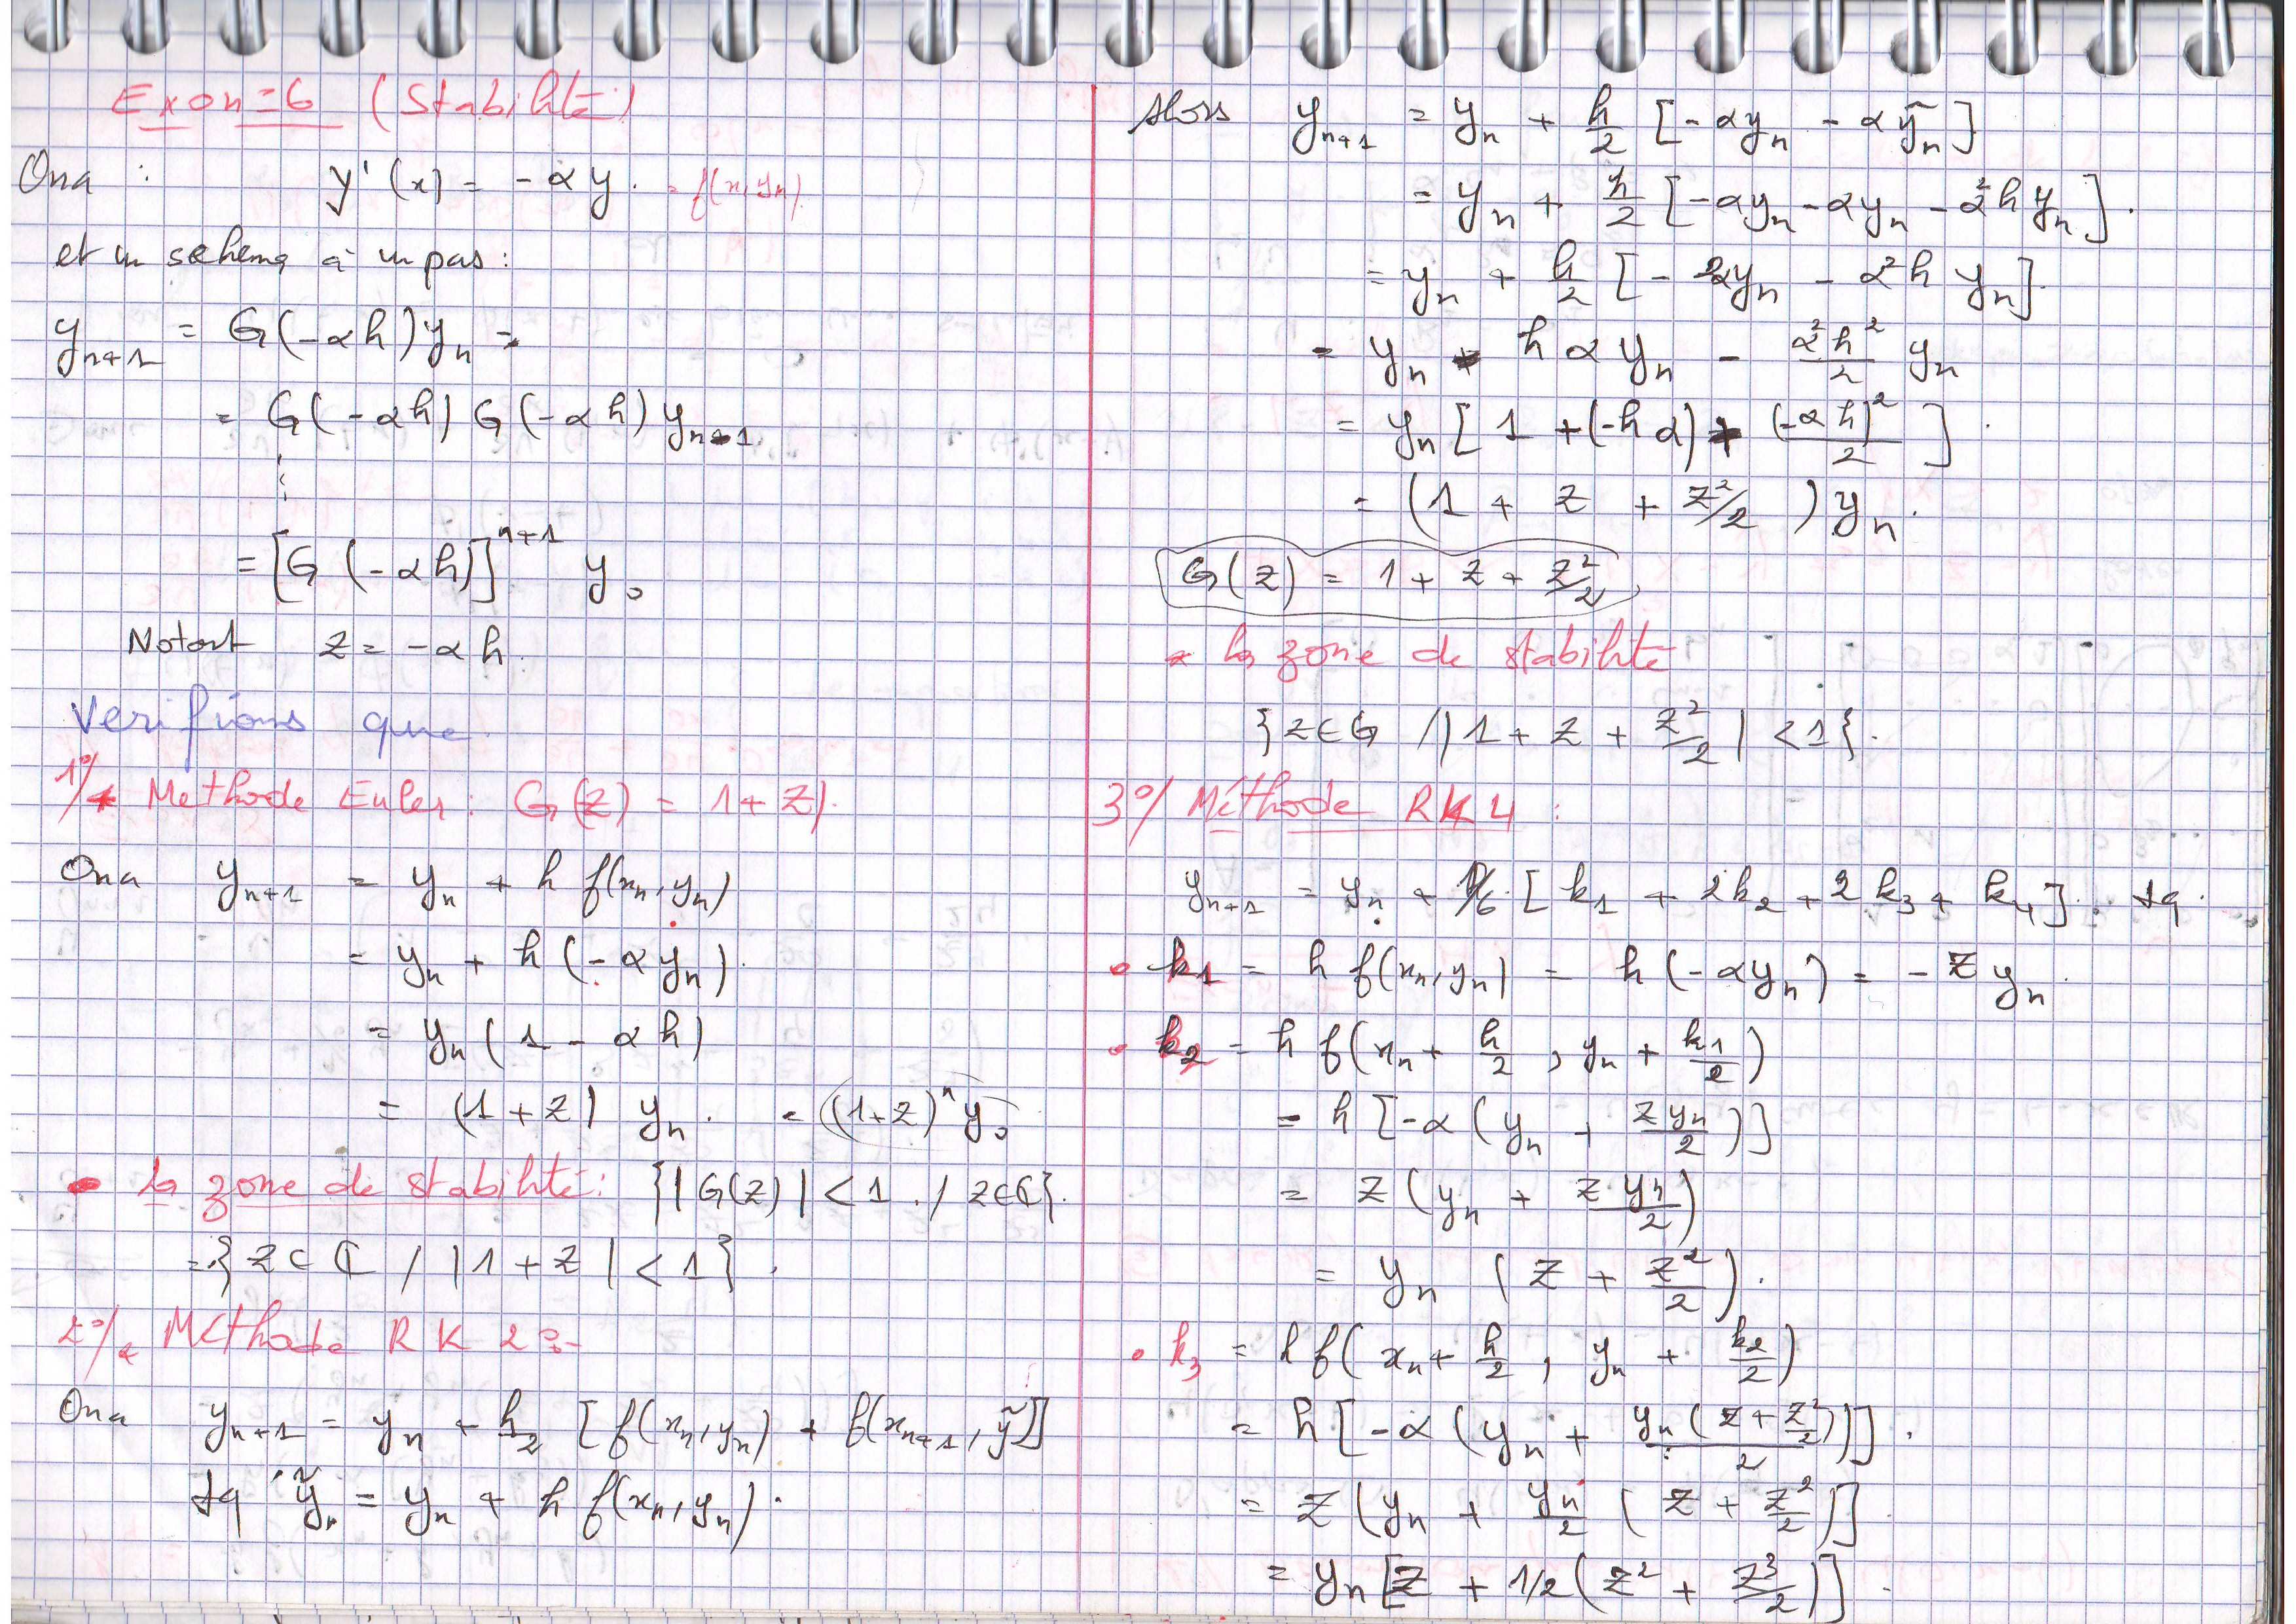 Exo n=6 (Stabilité)
Ona : y'(x) = -αy. = f(x,yn)
et un schema à un pas :
y_{n+1} = G(-αh)y_n =
= G(-αh) G(-αh) y_{n-1}
⋮
= [G(-αh)]^{n+1} y_0
Notont z = -αh.
Verifions que
1°/ Methode Euler : G(z) = 1+z).
Ona y_{n+1} = y_n + h f(x_n, y_n)
= y_n + h(-αy_n).
= y_n(1 - αh)
= (1+z) y_n. = ((1+z)^n y_0
la zone de stabilité : {|G(z)| < 1 . / z∈ℂ}.
= {z ∈ ℂ / |1+z| < 1}.
2°/ Méthode RK2 :-
Ona y_{n+1} = y_n + h/2 [f(x_n,y_n) + f(x_{n+1}, ỹ)]
tq ỹ_n = y_n + h f(x_n, y_n).
Alors y_{n+1} = y_n + h/2 [-αy_n - αỹ_n]
= y_n + h/2 [-αy_n - αy_n - α²h y_n].
= y_n + h/2 [- 2αy_n - α²h y_n].
= y_n - hαy_n - α²h²/2 y_n
= y_n [1 + (-hα) + (-αh)²/2].
= (1 + z + z²/2) y_n.
G(z) = 1 + z + z²/2
la zone de stabilité
{z∈G /|1 + z + z²/2| < 1}.
3°/ Méthode RK4 :
y_{n+1} = y_n + 1/6 [k_1 + 2k_2 + 2k_3 + k_4]. tq.
• k_1 = h f(x_n, y_n) = h(-αy_n) = -z y_n.
• k_2 = h f(x_n + h/2, y_n + k_1/2)
= h [-α(y_n + z y_n/2)]
= z (y_n + z y_n/2)
= y_n (z + z²/2).
• k_3 = h f(x_n + h/2, y_n + k_2/2)
= h [-α(y_n + y_n(z + z²/2)/2)].
= z (y_n + y_n/2 (z + z²/2)]
= y_n [z + 1/2(z² + z³/2)].